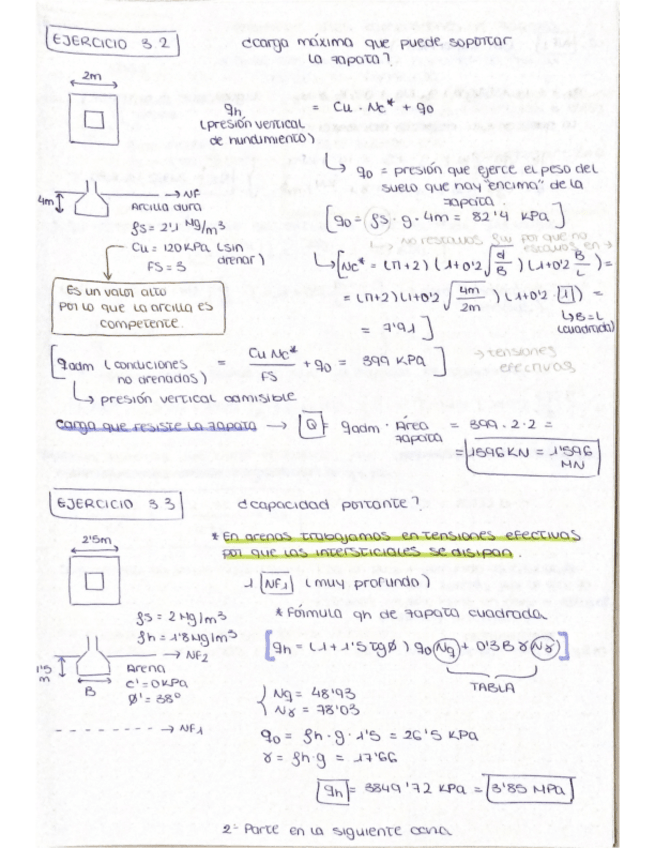 EJERCICIO 3.2
¿carga máxima que puede soportar
la zapata?
2m
qh = Cu · Nc* + q0
(presión vertical
de hundimiento)
q0 = presión que ejerce el peso del
suelo que hay "encima" de la
zapata.
4m
→ NF
Arcilla dura
ρs = 2'1 Mg/m³
Cu = 120 KPa (sin
drenar)
FS = 3
[q0 = ρs · g · 4m = 82'4 KPa]
→ No restamos ρw por que no
estamos en →
tensiones
efectivas
[Nc* = (π+2) (1+0'2 √(d/B)) (1+0'2 B/L) =
= (π+2) (1+0'2 √(4m/2m)) (1+0'2 · 1) =
↳ B=L
(cuadrada)
= 7'91]
Es un valor alto
por lo que la arcilla es
competente.
[qadm (condiciones
no drenadas) = Cu Nc*/FS + q0 = 399 KPa]
↳ presión vertical admisible
carga que resiste la zapata → Q = qadm · Área
zapata = 399 · 2 · 2 =
= 1596 KN = 1'596
MN
EJERCICIO 3.3
¿capacidad portante?
2'5m
* En arenas trabajamos en tensiones efectivas
por que las intersticiales se disipan.
1 NF1 (muy profundo)
* Fórmula qh de zapata cuadrada
ρs = 2 Mg/m³
ρh = 1'8 Mg/m³
→ NF2
1'5
m
B
Arena
c' = 0 KPa
Ø' = 38°
→ NF1
[qh = (1+1'5 tgØ) q0 Nq + 0'3 B γ Nγ]
TABLA
Nq = 48'93
Nγ = 78'03
q0 = ρh · g · 1'5 = 26'5 KPa
γ = ρh · g = 17'66
qh = 3849'72 KPa = 3'85 MPa
2ª Parte en la siguiente cara